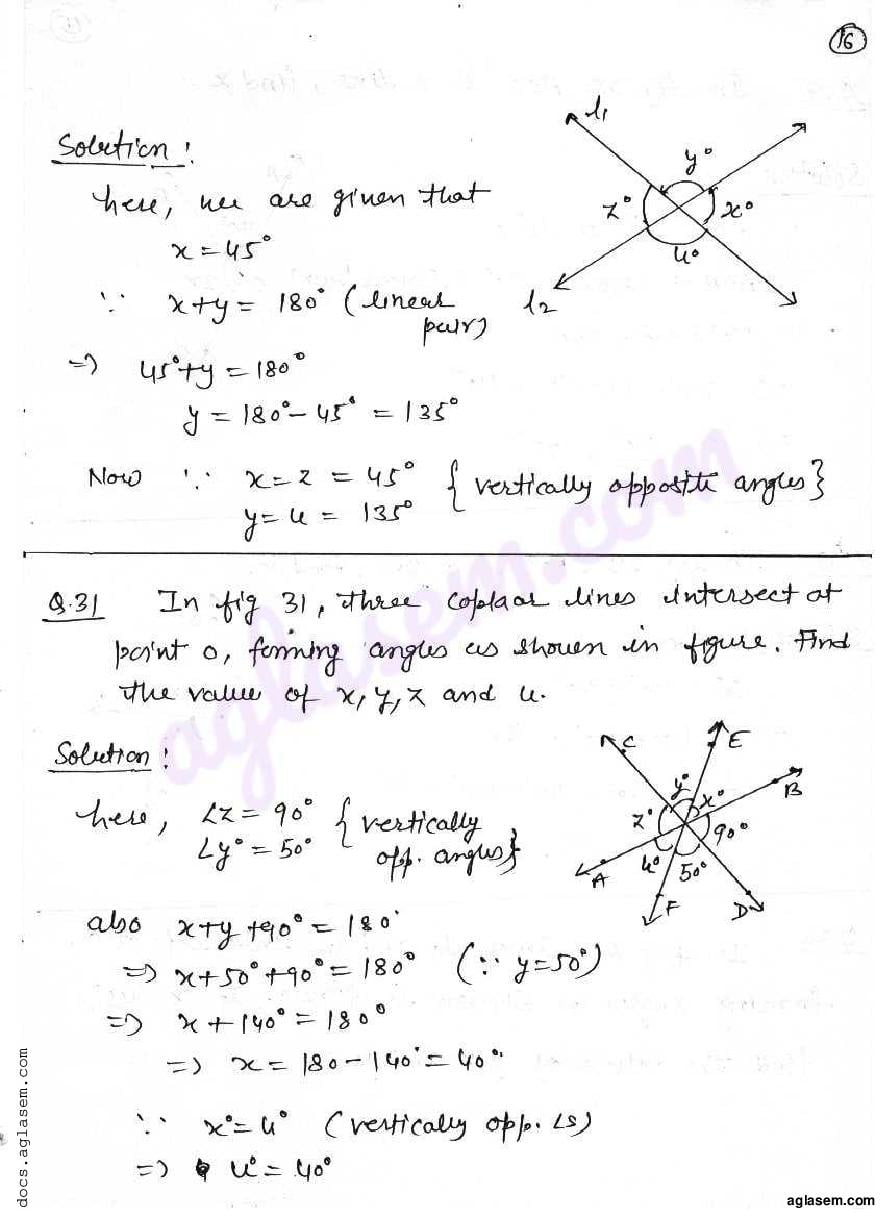 16
Solution:
here, we are given that
x = 45°
∵ x+y = 180° (linear
pair)
⇒ 45°+y = 180°
y = 180° - 45° = 135°
Now ∵ x = z = 45° { vertically opposite angles}
y = u = 135°
l₁
y°
z°
x°
u°
l₂
Q.31 In fig 31, three coplaar lines intersect at
point O, forming angles as shown in figure. Find
the value of x, y, z and u.
Solution:
here, ∠z = 90° { vertically
∠y° = 50° opp. angles}
also x+y+90° = 180°
⇒ x+50°+90° = 180° (∵ y=50°)
⇒ x+140° = 180°
⇒ x = 180 - 140° = 40°
∵ x° = u° (vertically opp. ∠s)
⇒ u° = 40°
C
E
y°
x°
B
z°
90°
u°
50°
A
F
D
aglasem.com
docs.aglasem.com
aglasem.com